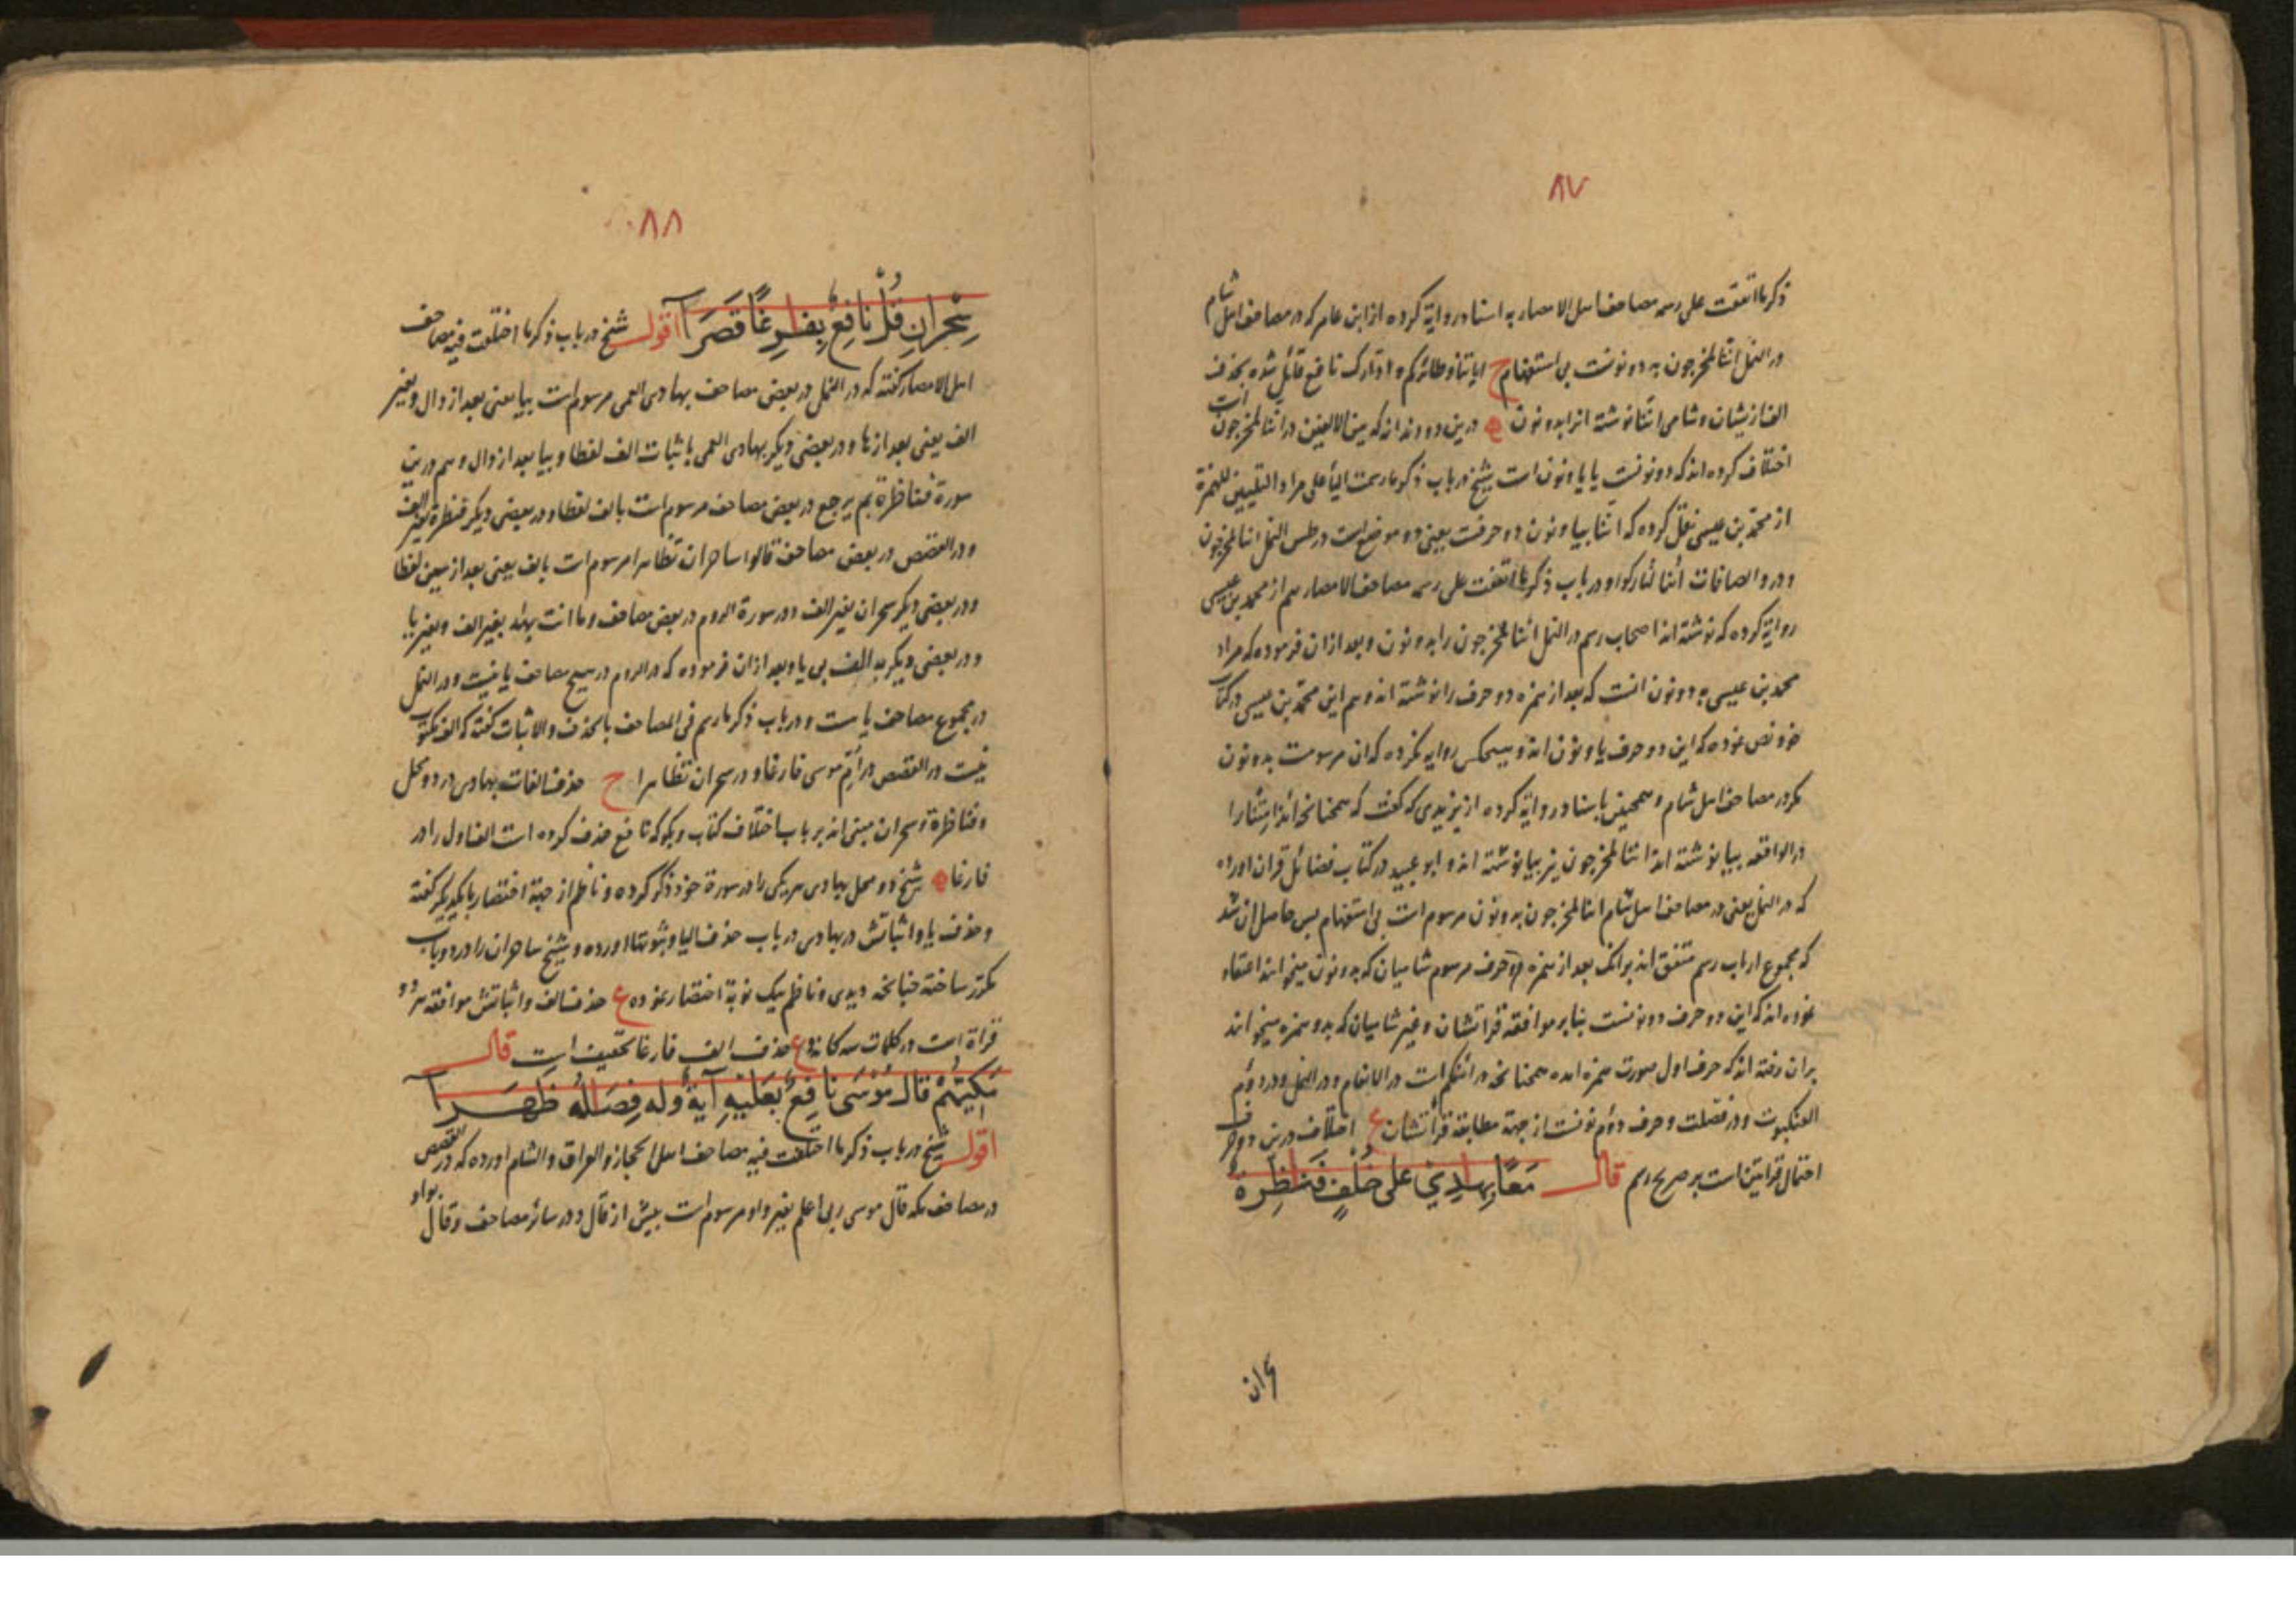 ٨٧
ذكر ما اتفقت على رسمه مصاحف اهل الامصار به اسناد رواية كرده از ابن عامر كه در مصاحف اهل شام
در النمل اننا لمخرجون به دو نونست بى استفهام ح اياتنا و طائركم و ادّارك نافع قائل شده بحذف
الف ازيشان و شامى اننا نوشته انرا بدو نون درين دو وند اند كه بين الالفين در ائنا لمخرجون است
اختلاف كرده اند كه دو نونست يا يا و نون است شيخ در باب ذكر ما رسمت اليأ على مراد التليين للهمزة
از محمد بن عيسى نقل كرده كه ائنا بيا و نون دو حرفست يعنى دو موضع است در طس النمل ائنا لمخرجون
و در و الصافات أئنا لتاركوا و در باب ذكر ما اتفقت على رسمه مصاحف الامصار هم از محمد بن عيسى
رواية كرده كه نوشته اند اصحاب رسم در النمل ائنا لمخرجون را بدو نون و بعد ازان فرموده كه مراد
محمد بن عيسى به دو نون انست كه بعد از همزه دو حرف را نوشته اند و هم اين محمد بن عيسى در كتاب
خود نص نموده كه اين دو حرف يا و نون اند و هيچكس روايه نكرده كه ان مرسومست بدو نون
مكر در مصاحف اهل شام و همچنين باسناد رواية كرده از يزيدى كه كفت كه همچنانچه ائذا متنا را
در الواقعه بيا نوشته اند ائنا لمخرجون نيز بيا نوشته اند و ابو عبيد در كتاب فضائل قران اورده
كه در النمل يعنى در مصاحف اهل شام اننا لمخرجون بدو نون مرسوم است بى استفهام پس حاصل ان شد
كه مجموع ارباب رسم متفق اند برانك بعد از همزه دو حرف مرسوم شاميان كه بدو نون ميخوانند اعتقاد
نموده اند كه اين دو حرف دو نونست بنا بر موافقه قراتشان و غير شاميان كه بدو همزه ميخوانند
بران رفته اند كه حرف اول صورت همزه امده همچنانچه در ائنكم است در الانعام و در النمل و در دوّم
العنكبوت و در فصلت و حرف دوّم نونست از جهة مطابقة قرأتشان ع اختلاف درين دو حرف
احتمال قراتين است بر صريح رسم قال مَعًا بِهٰدِى عَلى خُلْفٍ فَنٰظِرَةٌ
ان
٨٨
سِحْرانِ قُلْ نافِعٌ بِفٰرِغًا قَصَرَا اقول شيخ در باب ذكر ما اختلفت فيه مصاحف
اهل الامصار كفته كه در النمل در بعضى مصاحف بهادى العمى مرسوم است بيا يعنى بعد از دال و بغير
الف يعنى بعد از ها و در بعضى ديكر بهادى العمى باثبات الف لفظا و بيا بعد از دال و هم درين
سورة فناظرة بم يرجع در بعض مصاحف مرسوم است بالف لفظا و در بعضى ديكر فنظرة بغير الف
و در القصص در بعض مصاحف قالوا ساحران تظاهرا مرسوم است بالف يعنى بعد از سين لفظا
و در بعضى ديكر سحران بغير الف و در سورة الروم در بعض مصاحف و ما انت بهٰد بغير الف و بغير يا
و در بعضى ديكر به الف بى يا و بعد ازان فرموده كه در الروم در هيچ مصاحف يا نيست و در النمل
در مجموع مصاحف يا ست و در باب ذكر ما رسم فى المصاحف بالحذف و الاثبات كفته كه الف مكتوب
نيست در القصص در أمّ موسى فارغا و در سحران تظاهرا ح حذف الفات بهادى در دو محل
و فناظرة و سحران مبنى اند بر باب اختلاف كتاب و بكو كه نافع حذف كرده است الف اول را در
فارغا شيخ دو محل بهادى هر يكى را در سورة خود ذكر كرده و ناظم از جهة اختصار با يكديكر كفته
و حذف يا و اثباتش در بهادى در باب حذف اليا و ثبوتها اورده و شيخ ساحران را در دو باب
مكرر ساخته چنانچه ديدى و ناظم بيك نوبة اختصار نموده ع حذف الف و اثباتش موافقه هر دو
قرأة است در كلمات سه كانه و ع حذف الف فارغا تخفيف است قال
مَكِّيّهُمْ قالَ مُوْسٰى نافِعٌ بِعَلَيْهِ آيَةٌ وَلَه فِصَالُه ظَهَرَا
اقول شيخ در باب ذكر ما اختلفت فيه مصاحف اهل الحجاز و العراق و الشام اورده كه در القصص
در مصاحف مكه قال موسى ربى اعلم بغير واو مرسوم است پيش از قال و در سائر مصاحف و قال بواو